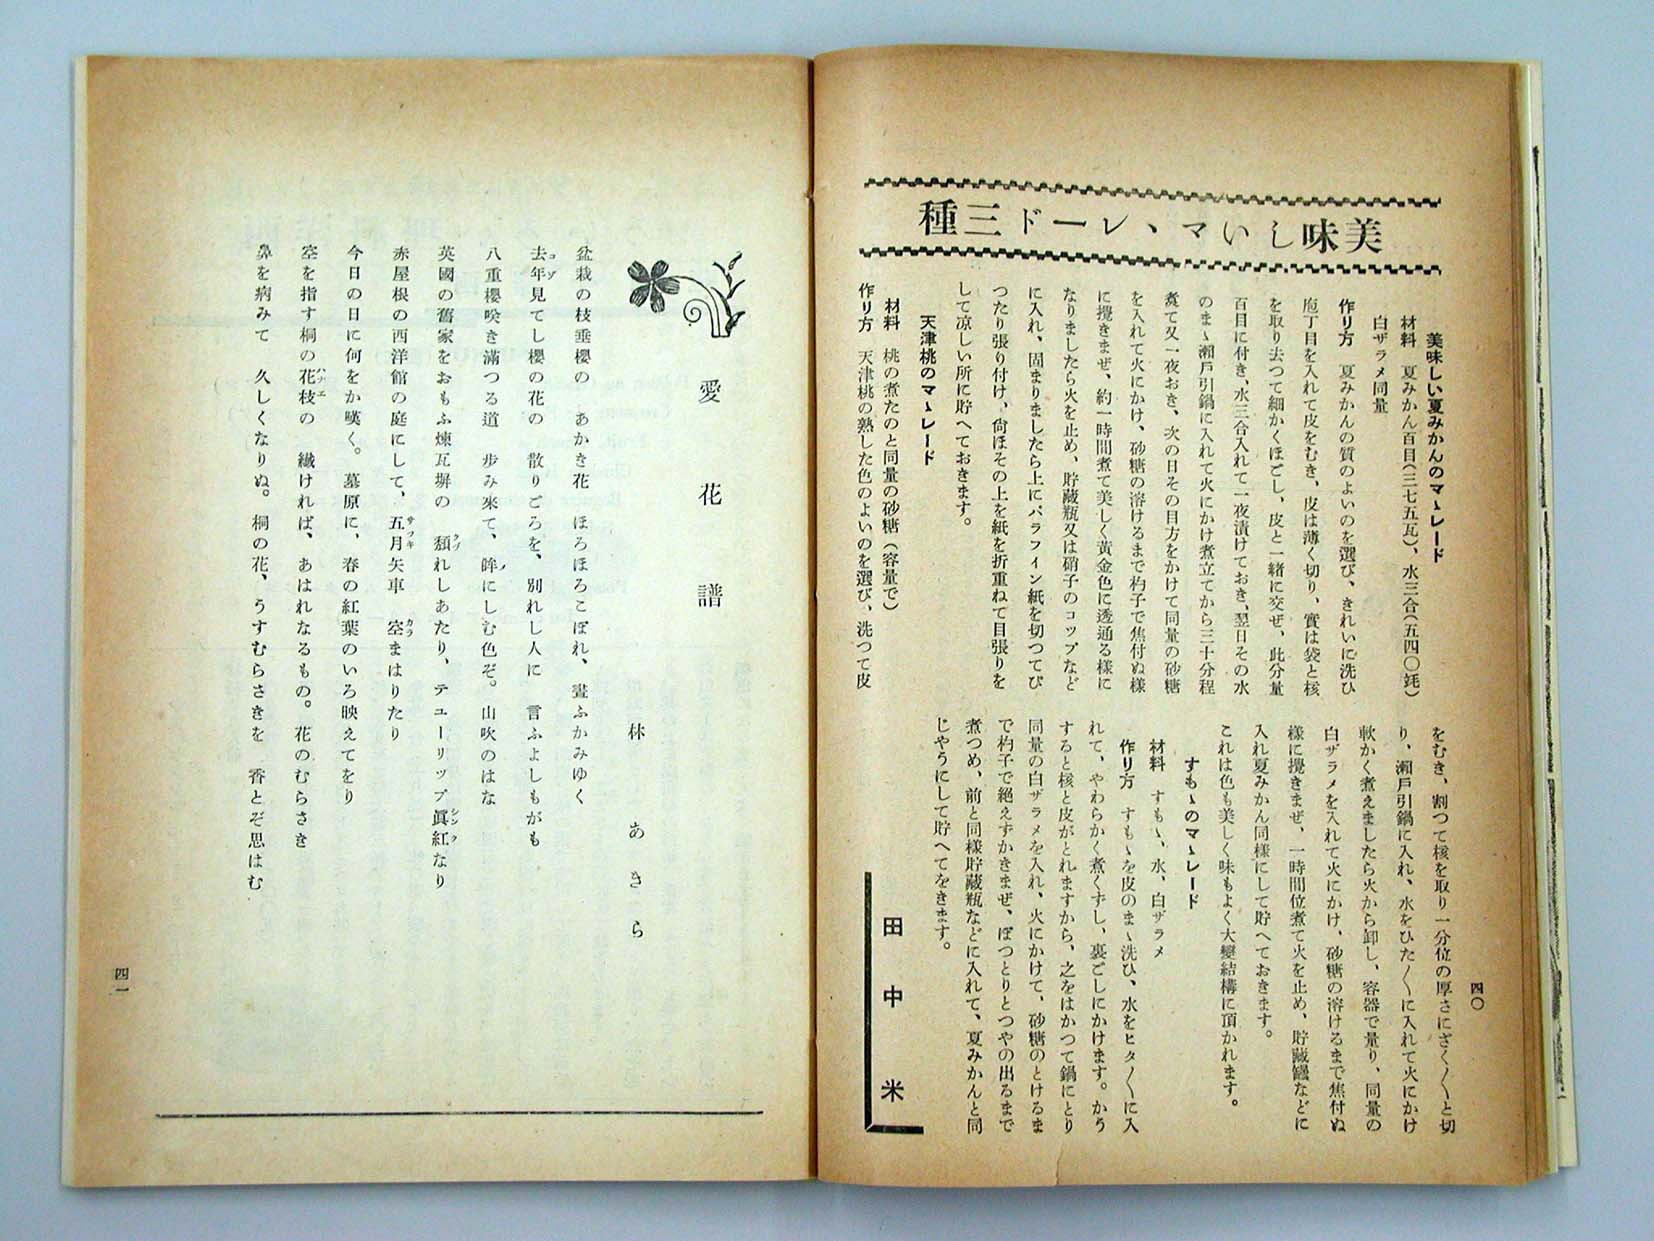 四〇
美味しいマヽレード三種
美味しい夏みかんのマヽレード
材料　夏みかん百目(三七五瓦)、水三合(五四〇竓)
白ザラメ同量
作り方　夏みかんの質のよいのを選び、きれいに洗ひ
庖丁目を入れて皮をむき、皮は薄く切り、實は袋と核
を取り去つて細かくほごし、皮と一緒に交ぜ、此分量
百目に付き、水三合入れて一夜漬けておき、翌日その水
のまヽ瀬戸引鍋に入れて火にかけ煮立てから三十分程
煮て又一夜おき、次の日その目方をかけて同量の砂糖
を入れて火にかけ、砂糖の溶けるまで杓子で焦付ぬ樣
に攪きまぜ、約一時間煮て美しく黃金色に透通る樣に
なりましたら火を止め、貯藏瓶又は硝子のコップなど
に入れ、固まりましたら上にパラフィン紙を切つてぴ
つたり張り付け、尙ほその上を紙を折重ねて目張りを
して凉しい所に貯へておきます。
天津桃のマヽレード
材料　桃の煮たのと同量の砂糖(容量で)
作り方　天津桃の熟した色のよいのを選び、洗つて皮
をむき、割つて核を取り一分位の厚さにざく〳〵と切
り、瀬戸引鍋に入れ、水をひた〳〵に入れて火にかけ
軟かく煮えましたら火から卸し、容器で量り、同量の
白ザラメを入れて火にかけ、砂糖の溶けるまで焦付ぬ
樣に攪きまぜ、一時間位煮て火を止め、貯藏罎などに
入れ夏みかん同樣にして貯へておきます。
これは色も美しく味もよく大變結構に頂かれます。
すもヽのマヽレード
材料　すもヽ、水、白ザラメ
作り方　すもヽを皮のまヽ洗ひ、水をヒタ〳〵に入
れて、やわらかく煮くずし、裏ごしにかけます。かう
すると核と皮がとれますから、之をはかつて鍋にとり
同量の白ザラメを入れ、火にかけて、砂糖のとけるま
で杓子で絶えずかきまぜ、ぽつとりとつやの出るまで
煮つめ、前と同樣貯藏瓶などに入れて、夏みかんと同
じやうにして貯へてをきます。
田中米
愛花譜
林　あきら
盆栽の枝垂櫻の　あかき花　ほろほろこぼれ、晝ふかみゆく
去年見てし櫻の花の　散りごろを、別れし人に　言ふよしもがも
コゾ
八重櫻咲き滿つる道　歩み來て、眸にしむ色ぞ。山吹のはな
英國の舊家をおもふ煉瓦塀の　頽れしあたり、チューリップ眞紅なり
クヅ
シンク
赤屋根の西洋館の庭にして、五月矢車　空まはりたり
サツキ
カラ
今日の日に何をか嘆く。墓原に、春の紅葉のいろ映えてをり
空を指す桐の花枝の　纖ければ、あはれなるもの。花のむらさき
ハナエ
鼻を病みて　久しくなりぬ。桐の花、うすむらさきを　香とぞ思はむ
四一